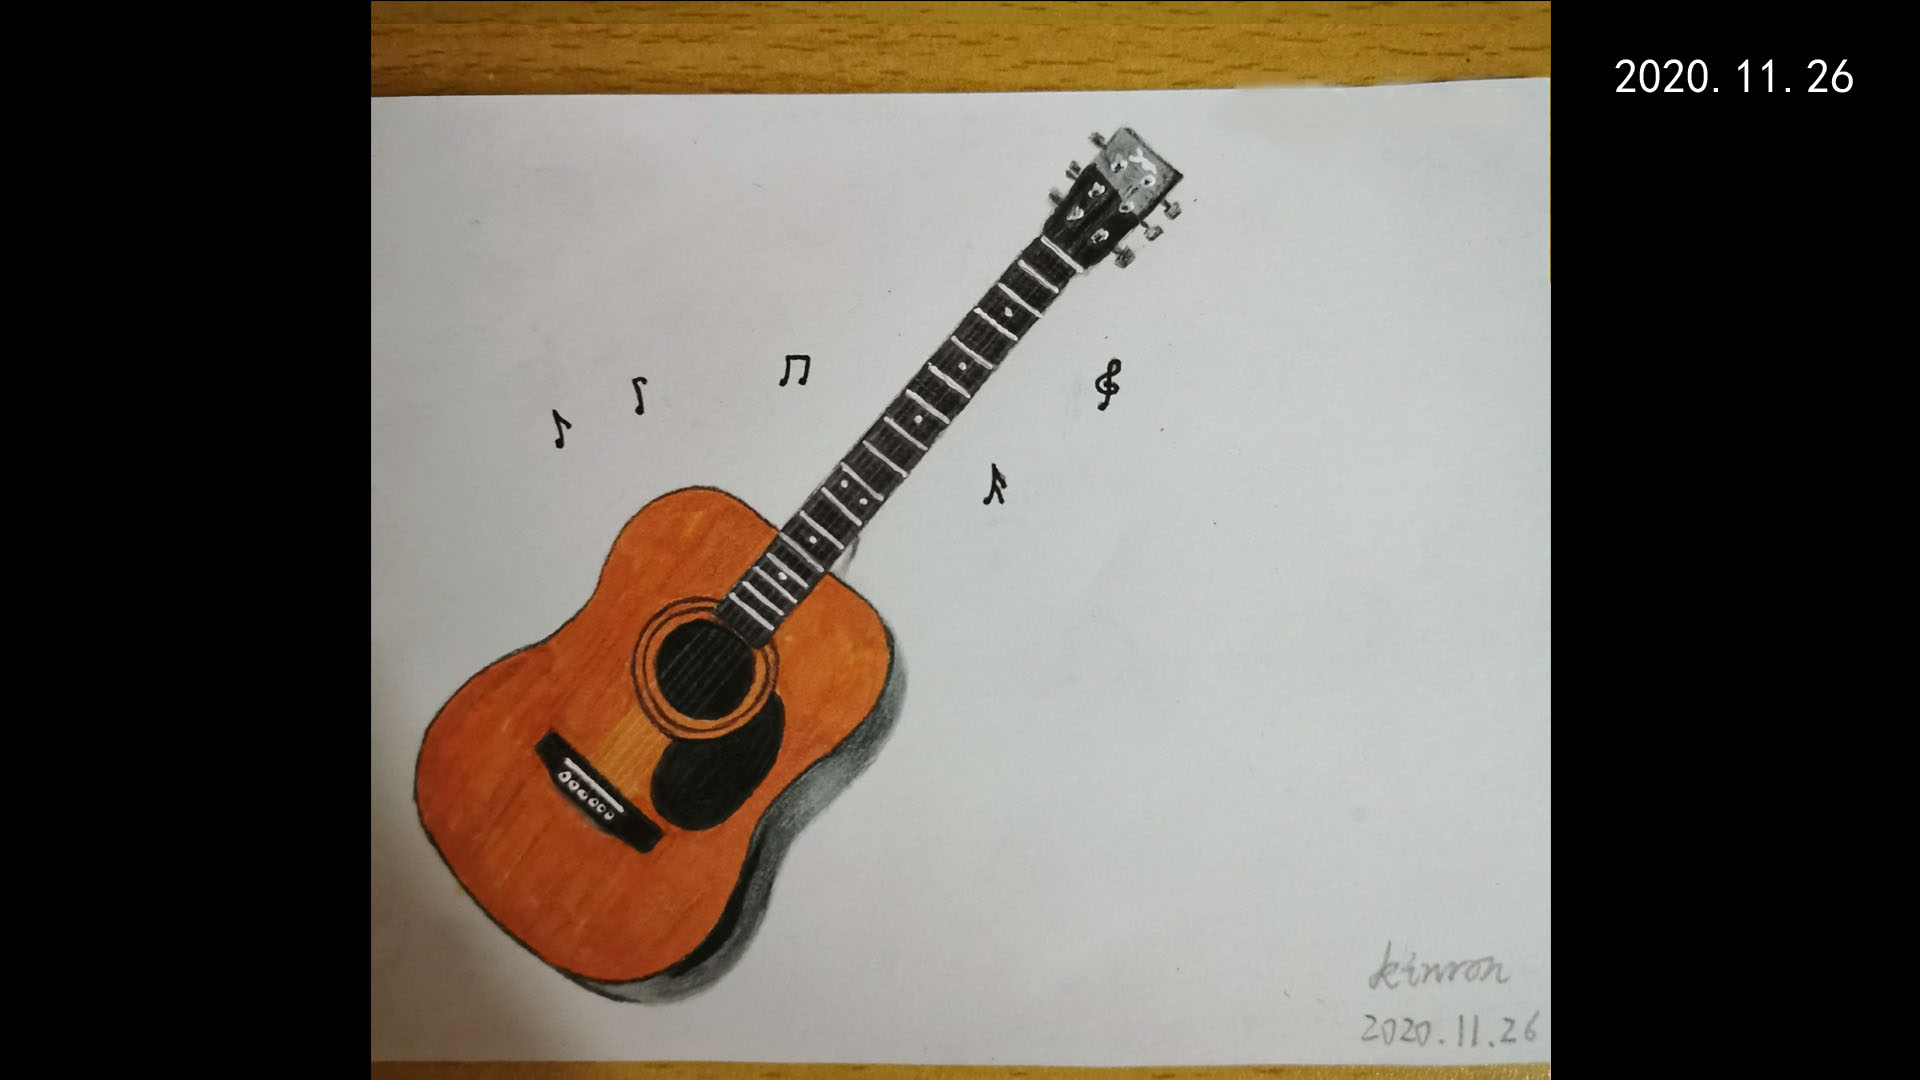 2020.11.26
kinron
2020.11.26